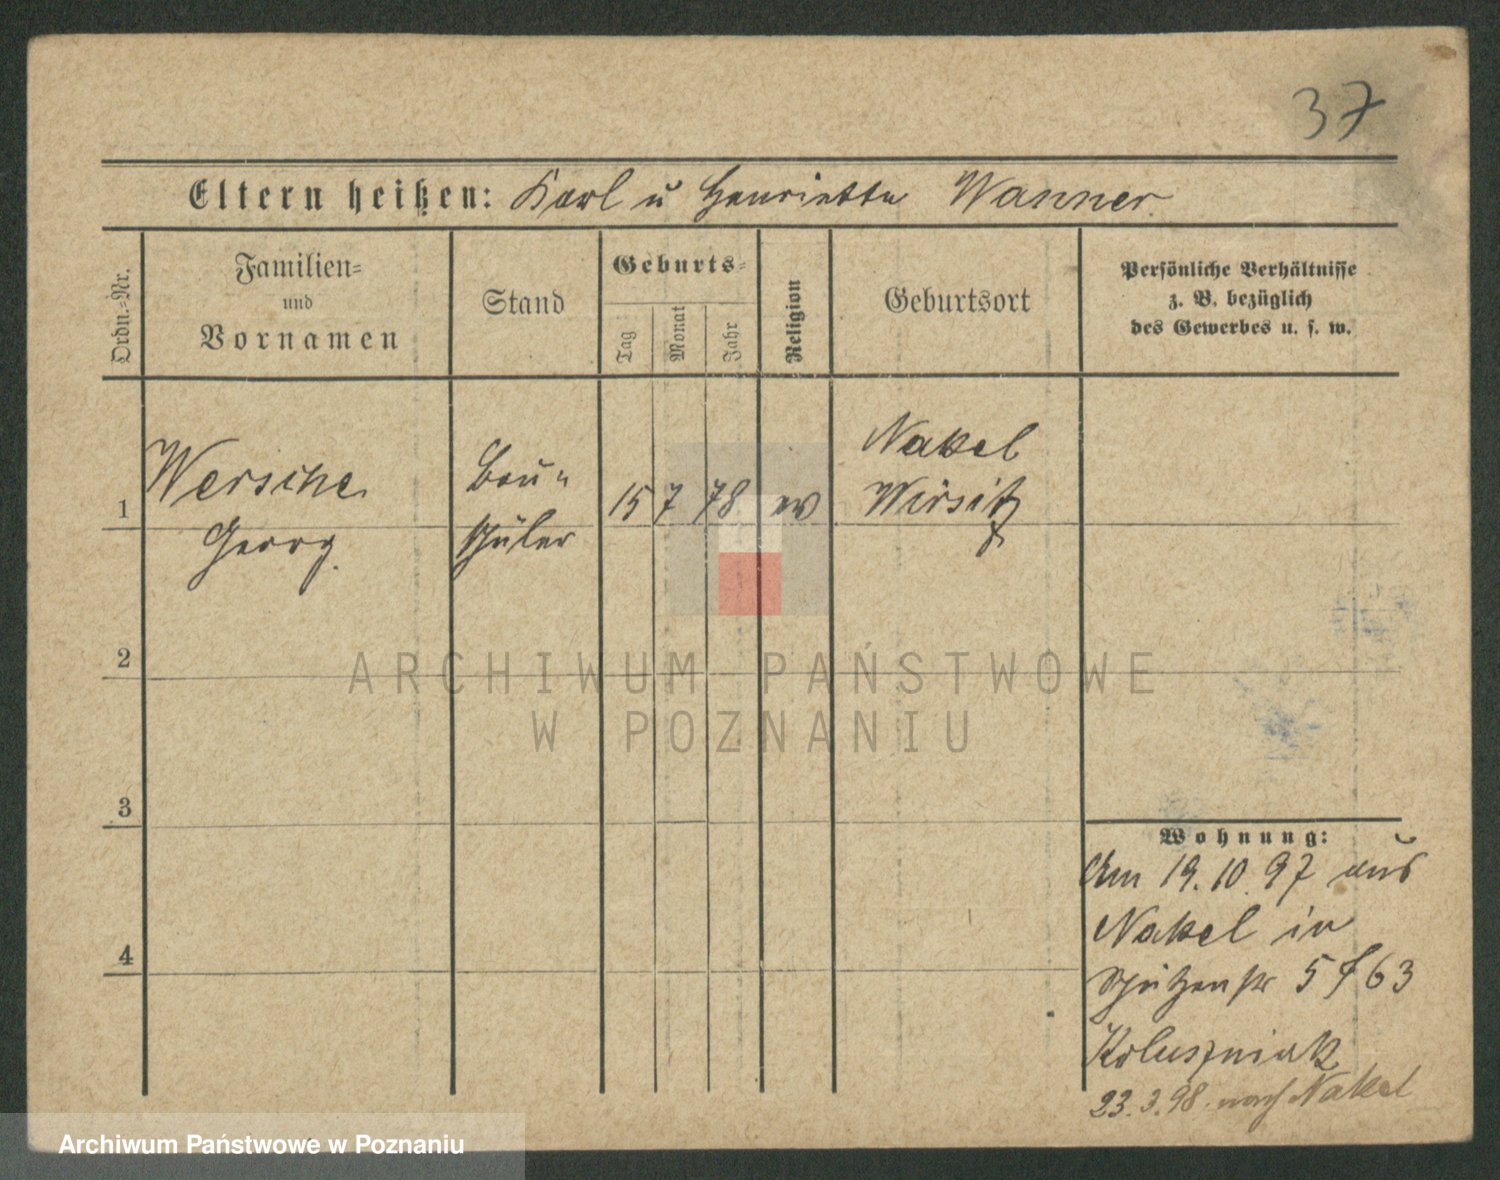 37
Eltern heißen: Karl u Henriette Wanner.
Ordn.-Nr.
Familien-
und
Vornamen
Stand
Geburts-
Tag
Monat
Jahr
Religion
Geburtsort
Persönliche Verhältnisse
z. B. bezüglich
des Gewerbes u. s. w.
1
Wersche
Georg.
Bau-
schüler
15
7
78
ev
Nakel
Wirsitz
2
3
4
Wohnung:
Am 19.10.97 aus
Nakel in
Schützenstr 5 f 63
Koluszniak
23.3.98. nach Nakel
ARCHIWUM PAŃSTWOWE
W POZNANIU
Archiwum Państwowe w Poznaniu